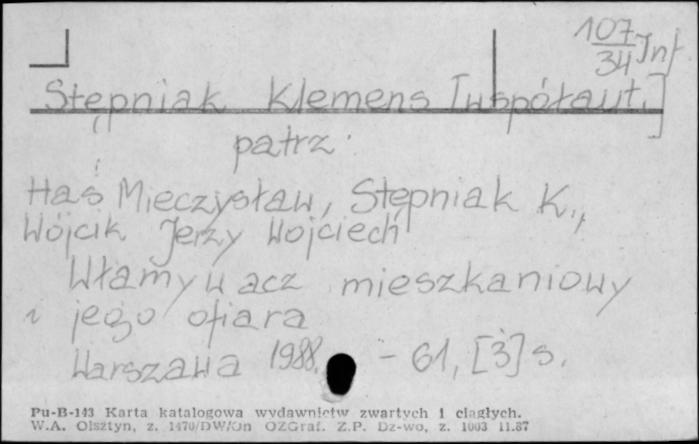 107
34 Inf
Stępniak Klemens [współaut.]
patrz
Haś Mieczysław, Stępniak K.,
Wójcik Jerzy Wojciech
Włamywacz mieszkaniowy
i jego ofiara
Warszawa 1988. - 61, [3] s.
Pu-B-143 Karta katalogowa wydawnictw zwartych i ciągłych.
W.A. Olsztyn, z. 1470/DW/On OZGraf. Z.P. Dz-wo, z. 1003 11.87